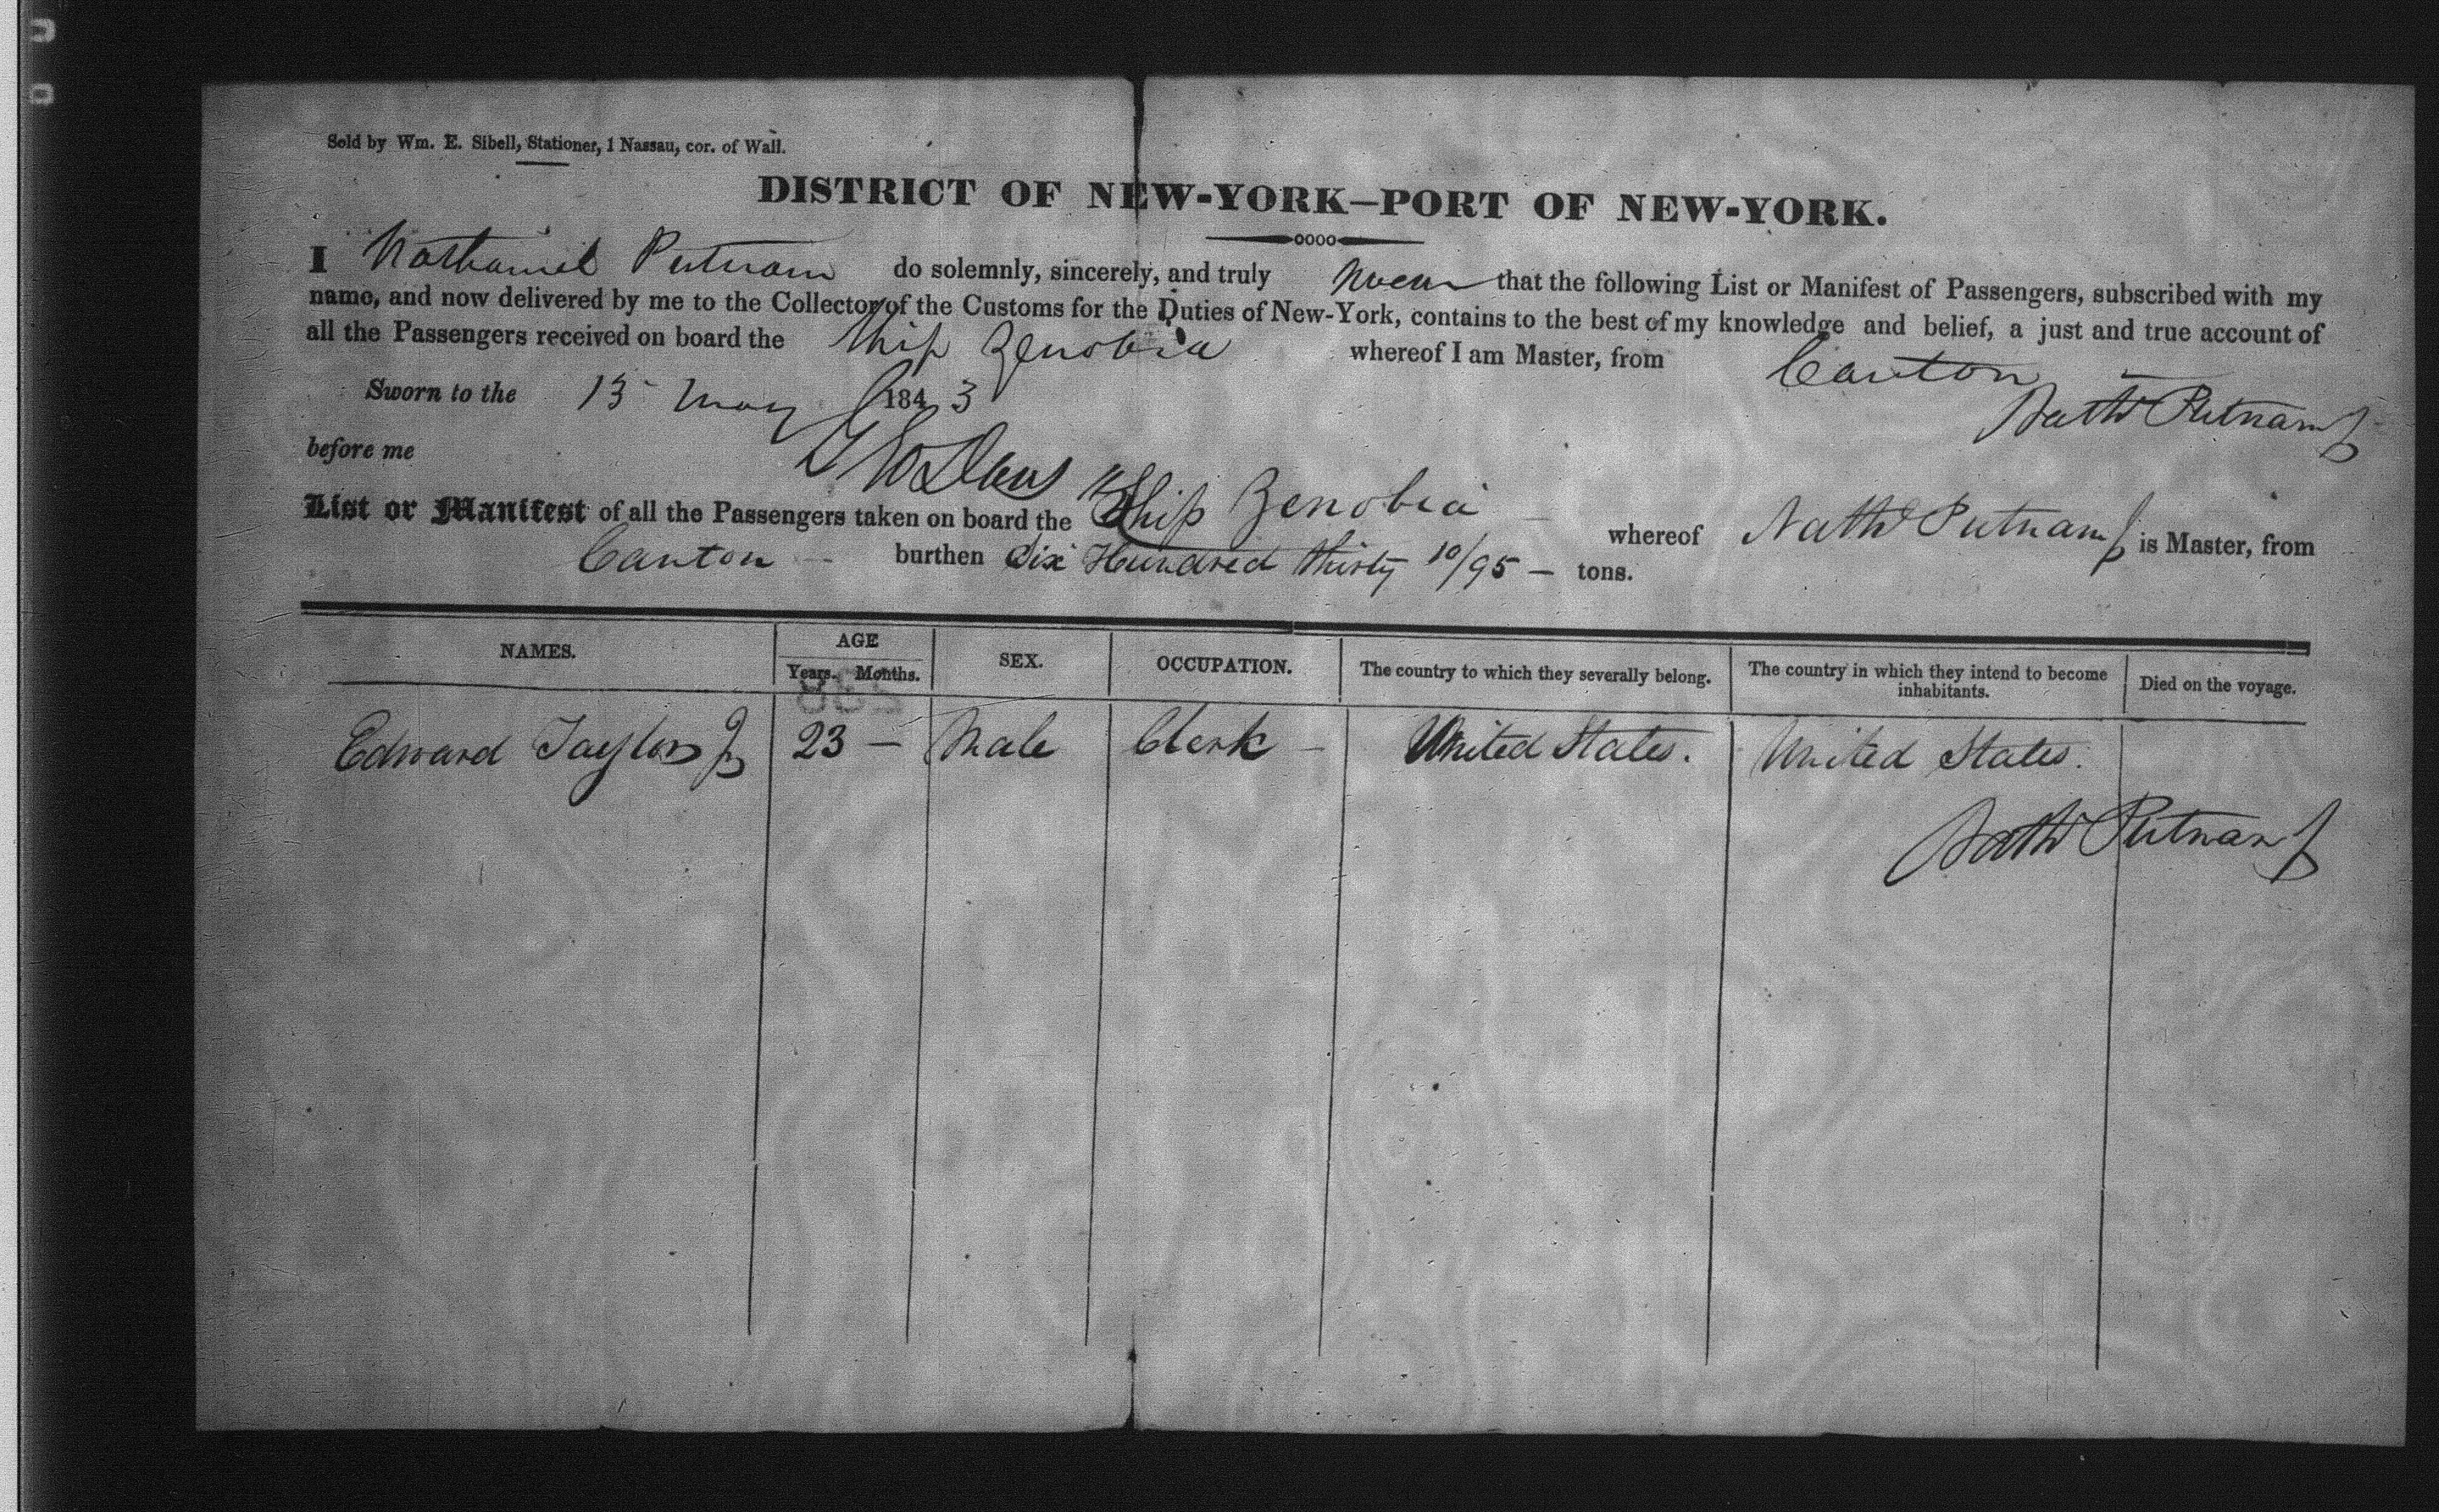 Sold by Wm. E. Sibell, Stationer, 1 Nassau, cor. of Wall.
DISTRICT OF NEW-YORK—PORT OF NEW-YORK.
I Nathaniel Putnam do solemnly, sincerely, and truly swear that the following List or Manifest of Passengers, subscribed with my
name, and now delivered by me to the Collector of the Customs for the Duties of New-York, contains to the best of my knowledge and belief, a just and true account of
all the Passengers received on board the Ship Zenobia whereof I am Master, from Canton
Sworn to the 13 May 1843
Nathl Putnam Jr
before me
List or Manifest of all the Passengers taken on board the Ship Zenobia whereof Nathl Putnam Jr is Master, from
Canton burthen Six Hundred thirty 10/95 – tons.
NAMES. AGE Years. Months. SEX. OCCUPATION. The country to which they severally belong. The country in which they intend to become inhabitants. Died on the voyage.
Edward Taylor Jr 23 – Male Clerk – United States. United States.
Nathl Putnam Jr